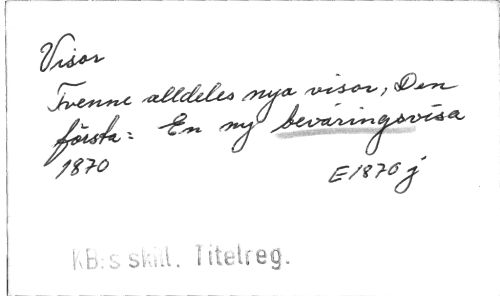 Visor
Tvenne alldeles nya visor, Den
första: En ny beväringsvisa
1870
E 1870 j
KB:s skill. Titelreg.